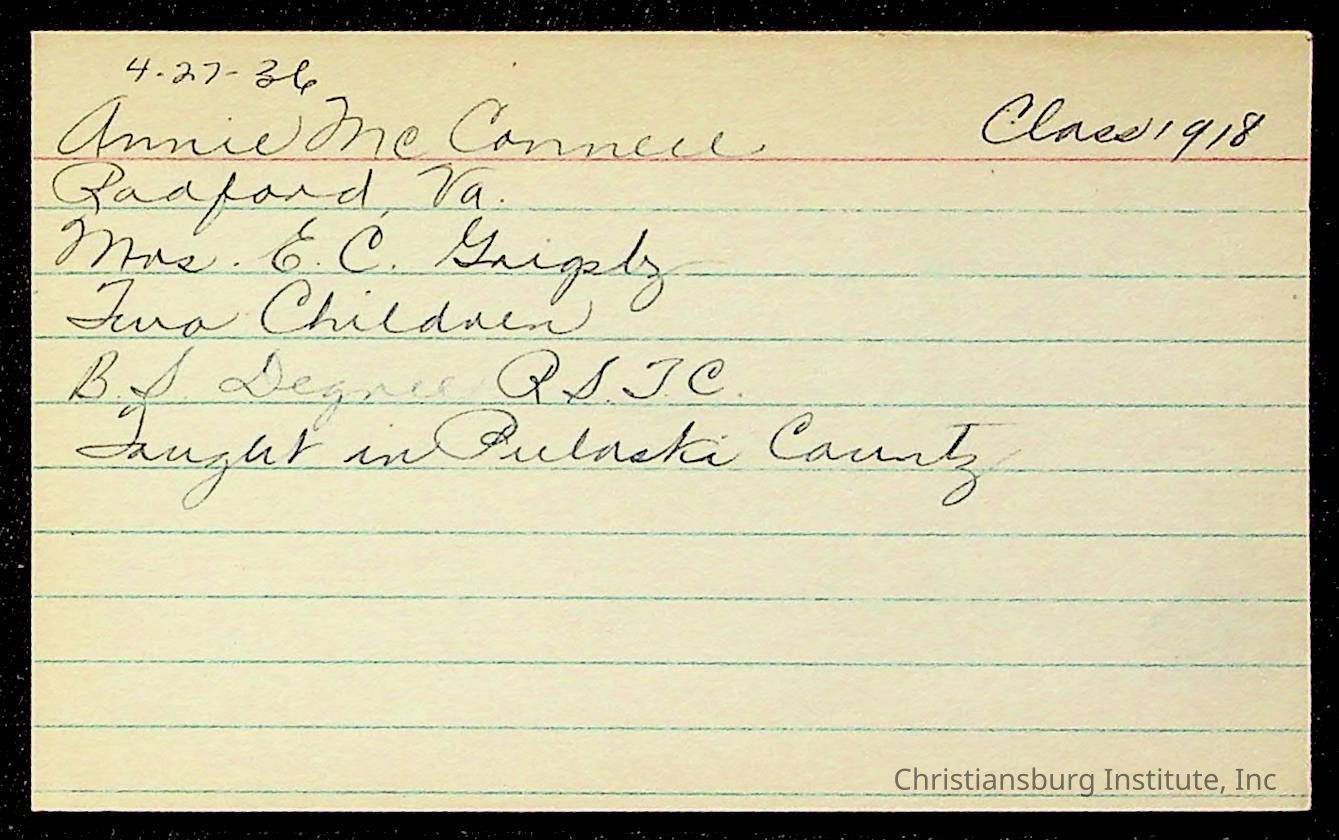 4-27-36
Annie McConnell Class 1918
Radford, Va.
Mrs. E. C. Grigsby
Two Children
B.S. Degree R.S.T.C.
Taught in Pulaski County
Christiansburg Institute, Inc